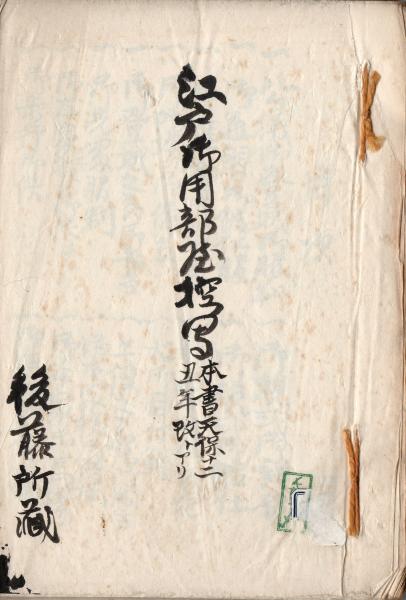 江戸御用部屋控写
本書天保十二
丑年改トアリ
後藤所蔵